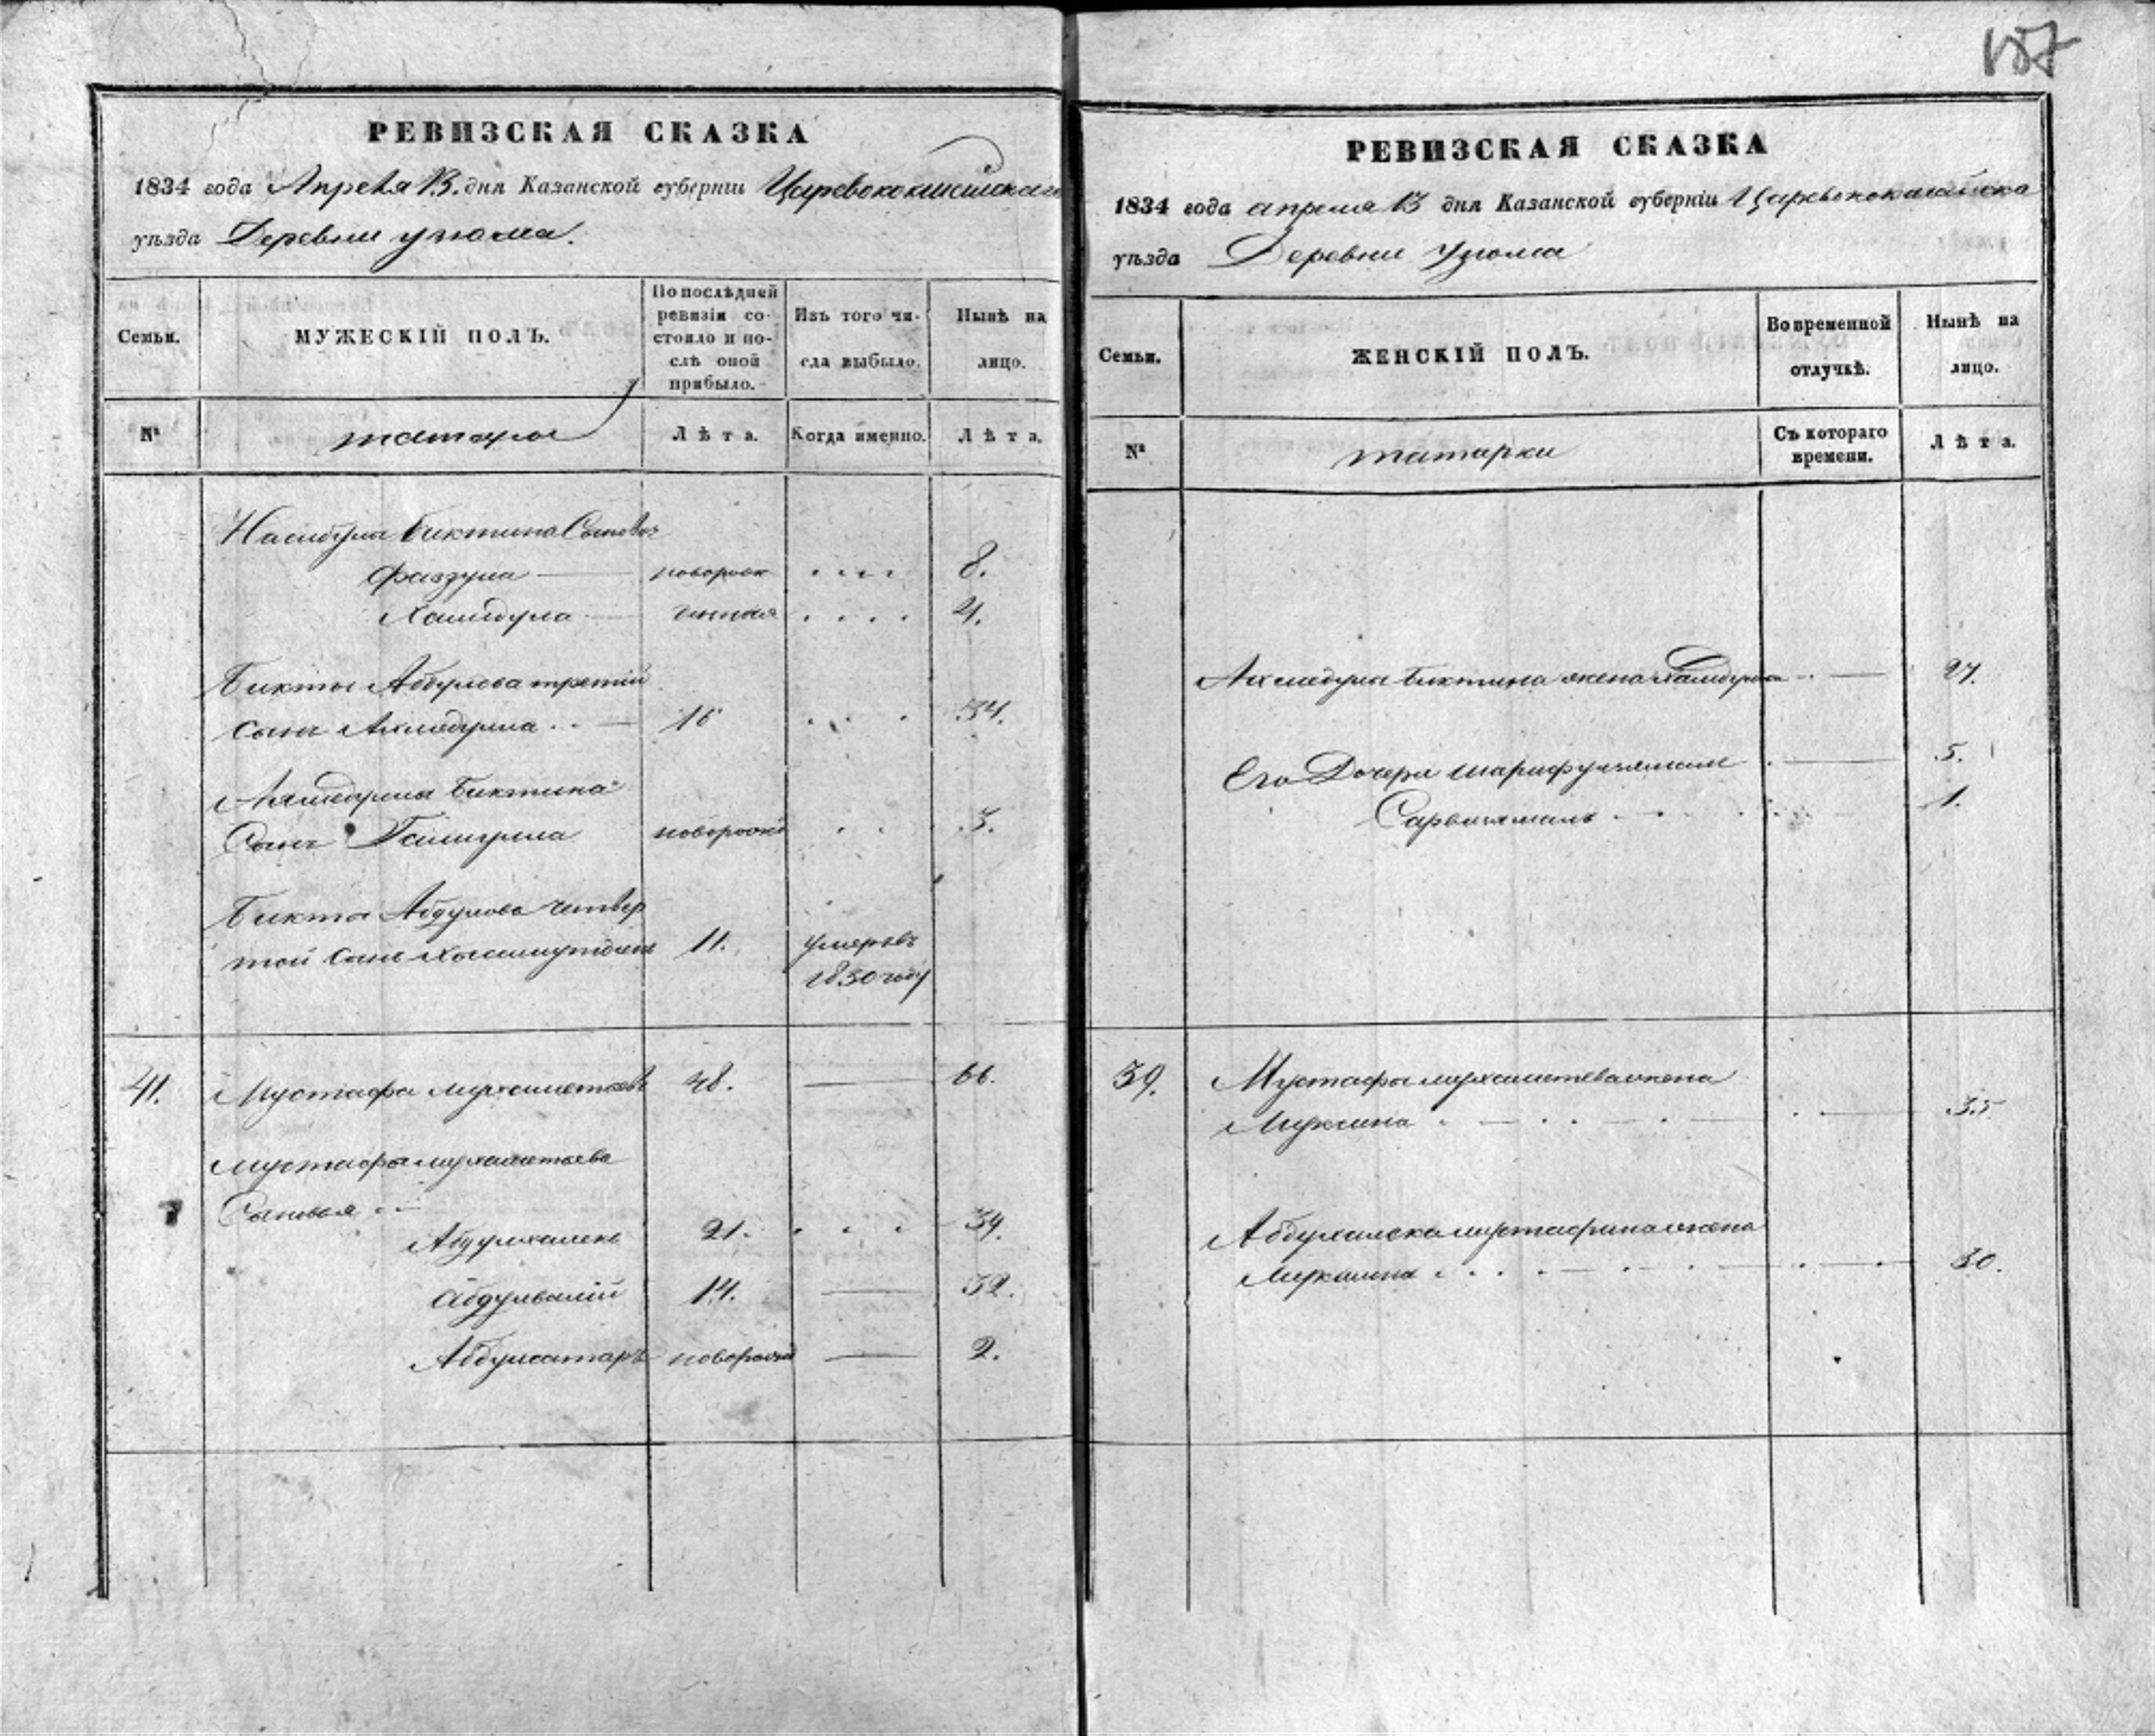 157
РЕВИЗСКАЯ СКАЗКА
1834 года Апреля 13. дня Казанской губерніи Царевококшайскаго
уѣзда Деревни
Семьи.
МУЖЕСКІЙ ПОЛЪ.
По послѣдней ревизіи состояло и послѣ оной прибыло.
Изъ того числа выбыло.
Нынѣ на лицо.
№
татары
Лѣта.
Когда именно.
Лѣта.
Насибулы Биктина Сыновья
Фаззула новорож 8.
Хамидула 4.
Бикты Абдулова третий
сынъ Ахмедулла 16 34.
Биктина
Сынъ новорож 3.
Бикты Абдулова четвер
той сынъ 11. умеръ въ
1830 году
41. Мустафа Мухаметевъ 48. 66.
Мустафы Мухаметева
Сыновья
Абдулхалекъ 21. 39.
Абдулвалий 14. 32.
Абдулсатаръ новорож 2.
РЕВИЗСКАЯ СКАЗКА
1834 года апреля 13 дня Казанской губерніи Царевококшайска
уѣзда Деревни
Семьи.
ЖЕНСКІЙ ПОЛЪ.
Во временной отлучкѣ.
Нынѣ на лицо.
№
татарки
Съ котораго времени.
Лѣта.
Ахмедулы Биктина жена 27.
Его Дочери 5.
1.
39. Мустафы Мухаметева жена
35
Абдулхалека Мустафина жена
30.